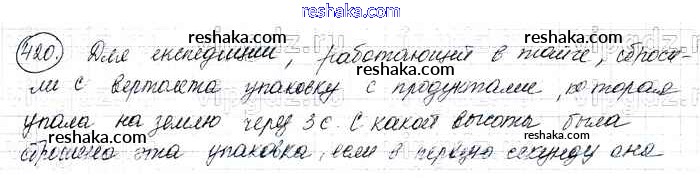 reshaka.com
420. Для експедиции, работающей в тайге, сброси-
reshaka.com reshaka.com
ли с вертолета упаковку с продуктами, которая
reshaka.com
упала на землю через 3с. С какой высоты была
reshaka.com reshaka.com
сброшена эта упаковка, если в первую секунду она
reshaka.com